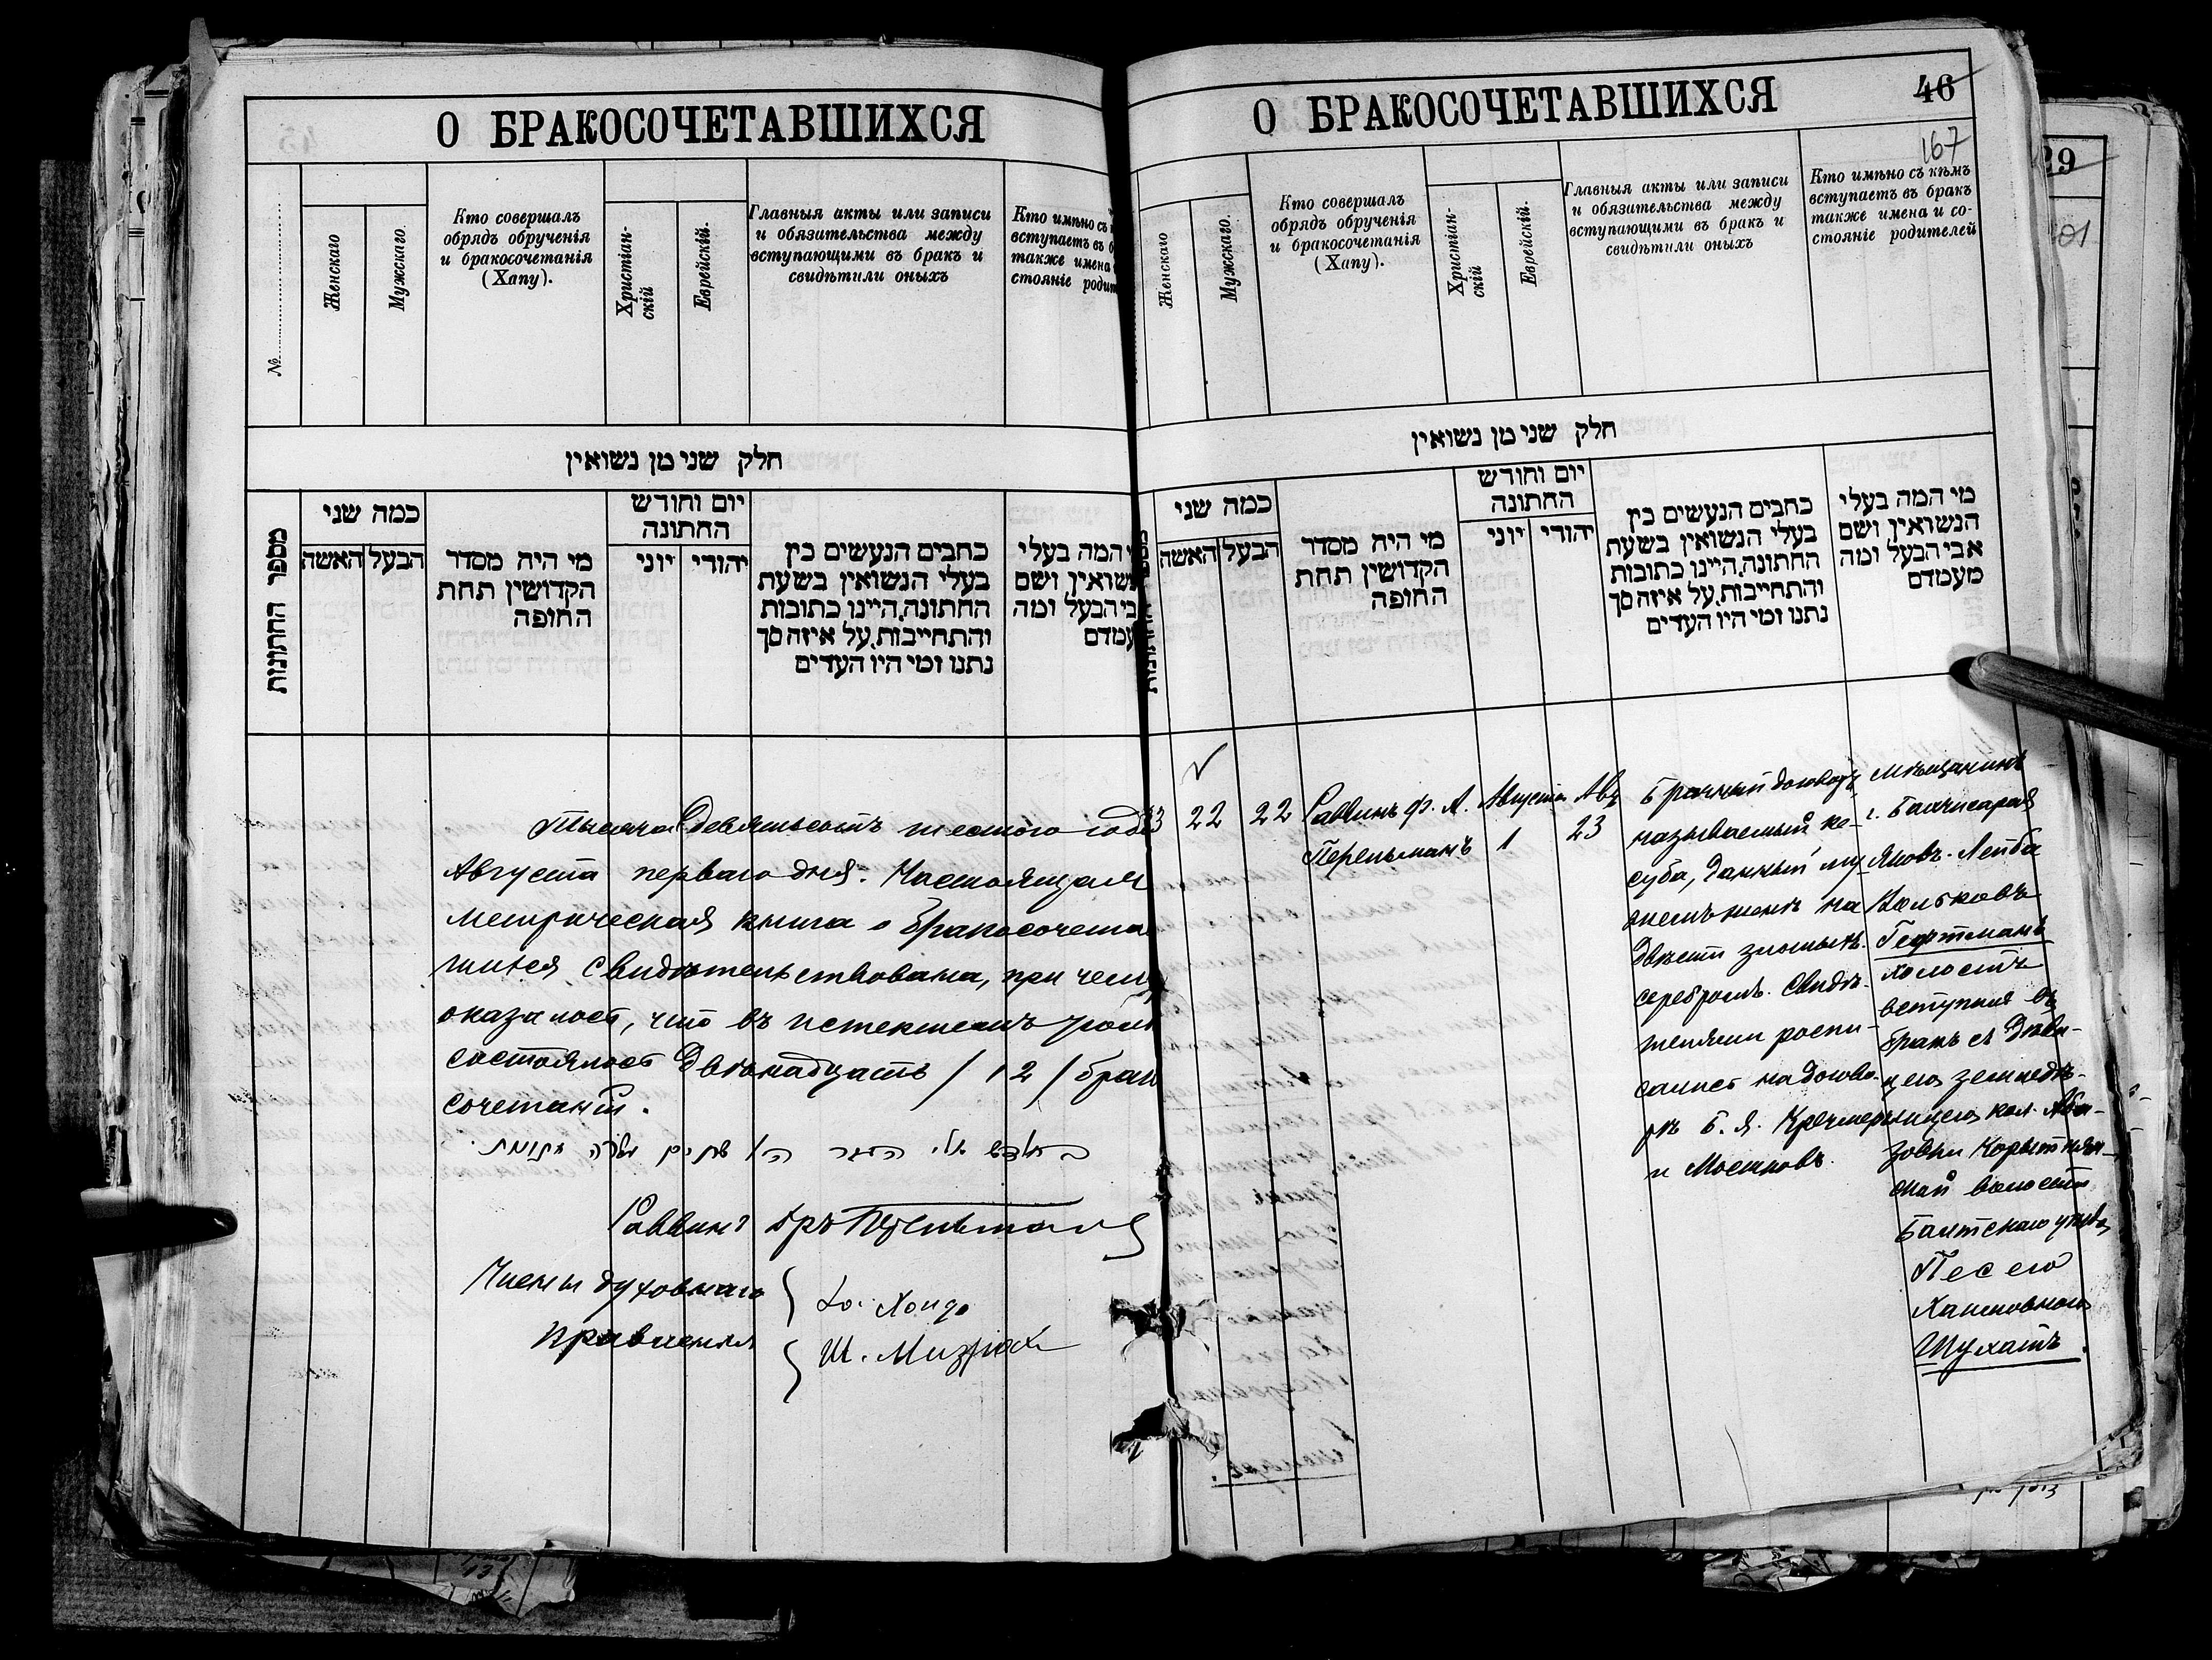 О БРАКОСОЧЕТАВШИХСЯ
№
Женскаго
Мужскаго.
Кто совершалъ
обрядъ обрученія
и бракосочетанія
(Хапу).
Христіан-
скій
Еврейскій.
Главныя акты или записи
и обязательства между
вступающими въ бракъ и
свидѣтили оныхъ
Кто имѣно съ
вступаетъ въ б
также имена
стояніе родит
חלק שני מן נשואין
מספר החתונות
כמה שני
האשה
הבעל
מי היה מסדר
הקדושין תחת
החופה
יום וחודש
החתונה
יוני
יהודי
כתבים הנעשים בין
בעלי הנשואין בשעת
החתונה, היינו כתובות
והתחייבות, על איזה סך
נתנו ומי היו העדים
י המה בעלי
נשואין ושם
בי הבעל ומה
עמדם
Тысяча девятьсотъ шестого года
Августа перваго дня. Настоящая
метрическая книга о бракосочетав
шихся свидѣтельствована, при чемъ
оказалось, что въ истекшемъ
состоялось двѣнадцать /12/ брако
сочетаній.
Раввинъ Перельманъ
Члены духовнаго
правленія
Ш. Мизрах
О БРАКОСОЧЕТАВШИХСЯ
46
167
Женскаго
Мужскаго.
Кто совершалъ
обрядъ обрученія
и бракосочетанія
(Хапу).
Христіан-
скій
Еврейскій.
Главныя акты или записи
и обязательства между
вступающими въ бракъ и
свидѣтили оныхъ
Кто имѣно съ кѣмъ
вступаетъ въ бракъ
также имена и со-
стояніе родителей
חלק שני מן נשואין
כמה שני
האשה
הבעל
מי היה מסדר
הקדושין תחת
החופה
יום וחודש
החתונה
יוני
יהודי
כתבים הנעשים בין
בעלי הנשואין בשעת
החתונה, היינו כתובות
והתחייבות, על איזה סך
נתנו ומי היו העדים
מי המה בעלי
הנשואין ושם
אבי הבעל ומה
מעמדם
3
22
22
Раввинъ Ф. А.
Перельманъ
Августа
1
Авъ
23
Брачный договоръ,
называемый ке-
суба, данный му-
жемъ женѣ на
двѣсти злотыхъ
серебромъ. Свидѣ-
телями роспи-
сались на догово-
рѣ Б. Я. Кречмеръ
и Москновъ.
Мѣщанинъ
г. Бахчисарая
Яковъ-Лейба
Вольковъ
Гертманъ
холостъ
вступилъ въ
бракъ съ дѣви-
цею земледѣ-
лицею кол. Аба-
зовки
ской волости
Балтскаго уѣзда
Песею
Хаимовною
Шухатъ.
29